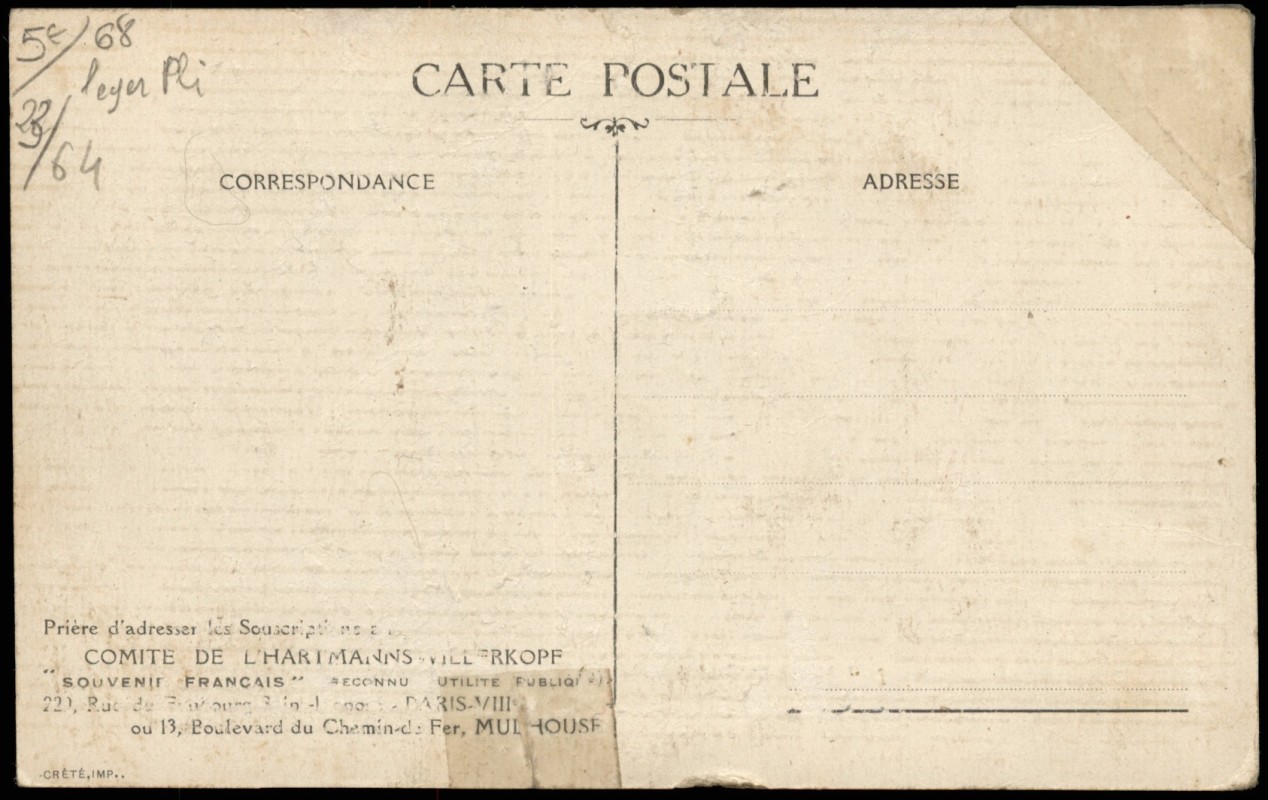 5€/68
leger Pli
64
CARTE POSTALE
CORRESPONDANCE
ADRESSE
Prière d'adresser les Souscriptions
COMITE DE L'HARTMANNSWILLERKOPF
"SOUVENIR FRANÇAIS" RECONNU UTILITE PUBLIQUE
Rue du Faubourg Saint-Honoré - PARIS-VIII
ou 13, Boulevard du Chemin-de Fer, MULHOUSE
CRÉTÉ, IMP..